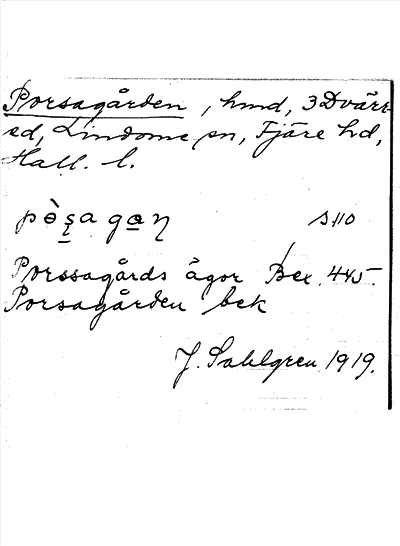 Porsagården, hmd, 3 Dvärr-
ed, Lindome sn, Fjäre hd,
Hall. l.
S 110
Porssagårds ägor Bex. 445.
Porsagården bek
J. Sahlgren 1919.